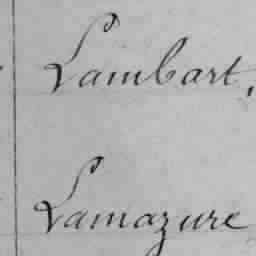 Lambart,
Lamazure